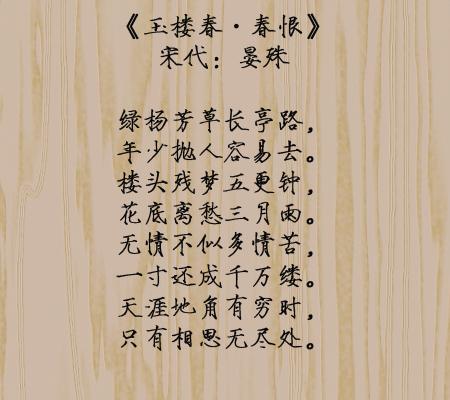 《玉楼春·春恨》
宋代：晏殊
绿杨芳草长亭路，
年少抛人容易去。
楼头残梦五更钟，
花底离愁三月雨。
无情不似多情苦，
一寸还成千万缕。
天涯地角有穷时，
只有相思无尽处。